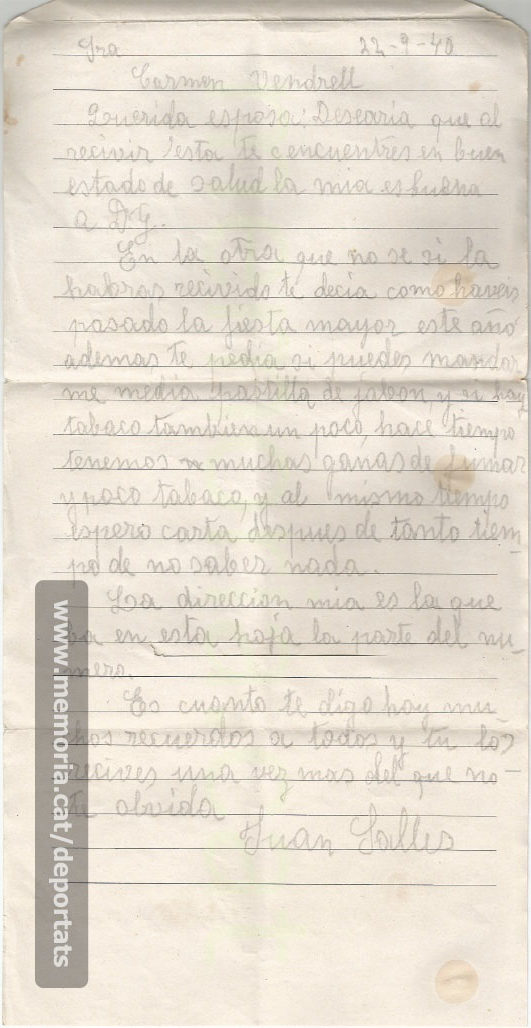 Sra 22-9-40
Carmen Vendrell
Querida esposa: Desearia que al
recivir esta te encuentres en buen
estado de salud la mia es buena
a D.G.
En la otra que no se si la
habras recivido te decia como haveis
pasado la fiesta mayor este año
ademas te pedia si puedes mandar
me media pastilla de jabon, y si hay
tabaco tambien un poco, hace tiempo
tenemos muchas ganas de fumar
y poco tabaco, y al mismo tiempo
espero carta despues de tanto tiem-
po de no saber nada.
La direccion mia es la que
ba en esta hoja la parte del nu-
mero.
Es cuanto te digo hoy mu-
chos recuerdos a todos y tu los
recives una vez mas del que no
te olvida
Juan Salles
www.memoria.cat/deportats